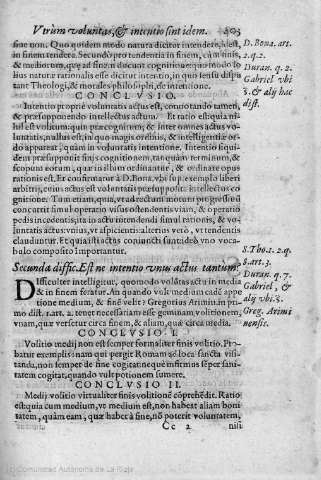 Vtrum voluntas, & intentio sint idem. 203
sine non. Quo quidem modo natura dicitur intendere, id est,
in finem tendere. Secundò pro tendentia in finem, cū minis,
& mediorum, quę ad finem ducunt cognitione: quo modo so
lius naturæ rationalis esse dicitur intentio, in quo sensu dispu
tant Theologi, & morales philosophi, de intentione.
D. Bona. art.
2. q. 2.
Duran. q. 2.
Gabriel vbi
ſ. & alij hac
dist.
CONCLVSIO.
Intentio propriè voluntatis actus est, connotando tamen,
& præsupponendo intellectus actum. Et ratio est: quia ni-
hil est volitum: quin præcognitum; & inter omnes actus vo-
luntatis, nullus est, in quo magis ordinis, & intelligentiæ ordo
appareat, quàm in voluntatis intentione. Intentio siqui-
dem præsupponit finis cognitionem, tanquàm terminum, &
scopum eorum, quæ in illum ordinantur, & ordinare opus
rationis est. Et confirmatur à D. Bona. vbi sup. exemplo liberi
arbitrij, cuius actus est voluntatis præsuppositi intellectus co
gnitione. Tum etiam, quia, vt ad rectum motum progressiuū
concurrit simul operatio visus ostendentis viam, & operatio
pedis incedentis, ita in actu intendendi simul rationis, & vo-
luntatis actus: vnius, vt aspicientis: alterius verò, vt tendentis
clauduntur. Et quia isti actus coniuncti sunt: ideò vno voca-
bulo composito importantur.
S. Tho. 1. 2. q.
Secunda diffic. Est ne intentio vnus actus tantum:
DIfficulter intelligitur, quomodo voluntas actu in media
& in finem feratur. An quando vult medium cadē appe
titione medium, & finē velit? Gregorius Arimin. in pri
mo dist. 1. art. 2. tenet necessariam esse geminam volitionem,
vnam, quæ versetur circa finem, & aliam, quæ circa media.
Duran. q. 7.
Gabriel, &
alij vbi ſ.
Greg. Arimi
nensis.
CONCLVSIO I.
Volitio medij non est semper formaliter finis volitio. Pro-
batur exemplis: nam qui pergit Romam ad loca sancta visi-
tanda, non semper de fine cogitat: neque infirmus semper sani-
tatem cogitat, quando vult potionem sumere.
CONCLVSIO II.
Medij volitio virtualiter finis volitionē cōprehēdit. Ratio
est: quia cum medium, vt medium est, non habeat aliam boni
tatem, quàm eam, quæ habet à fine, nō poterit voluntatem,
Cc 2 nisi
Comunidad Autónoma de La Rioja